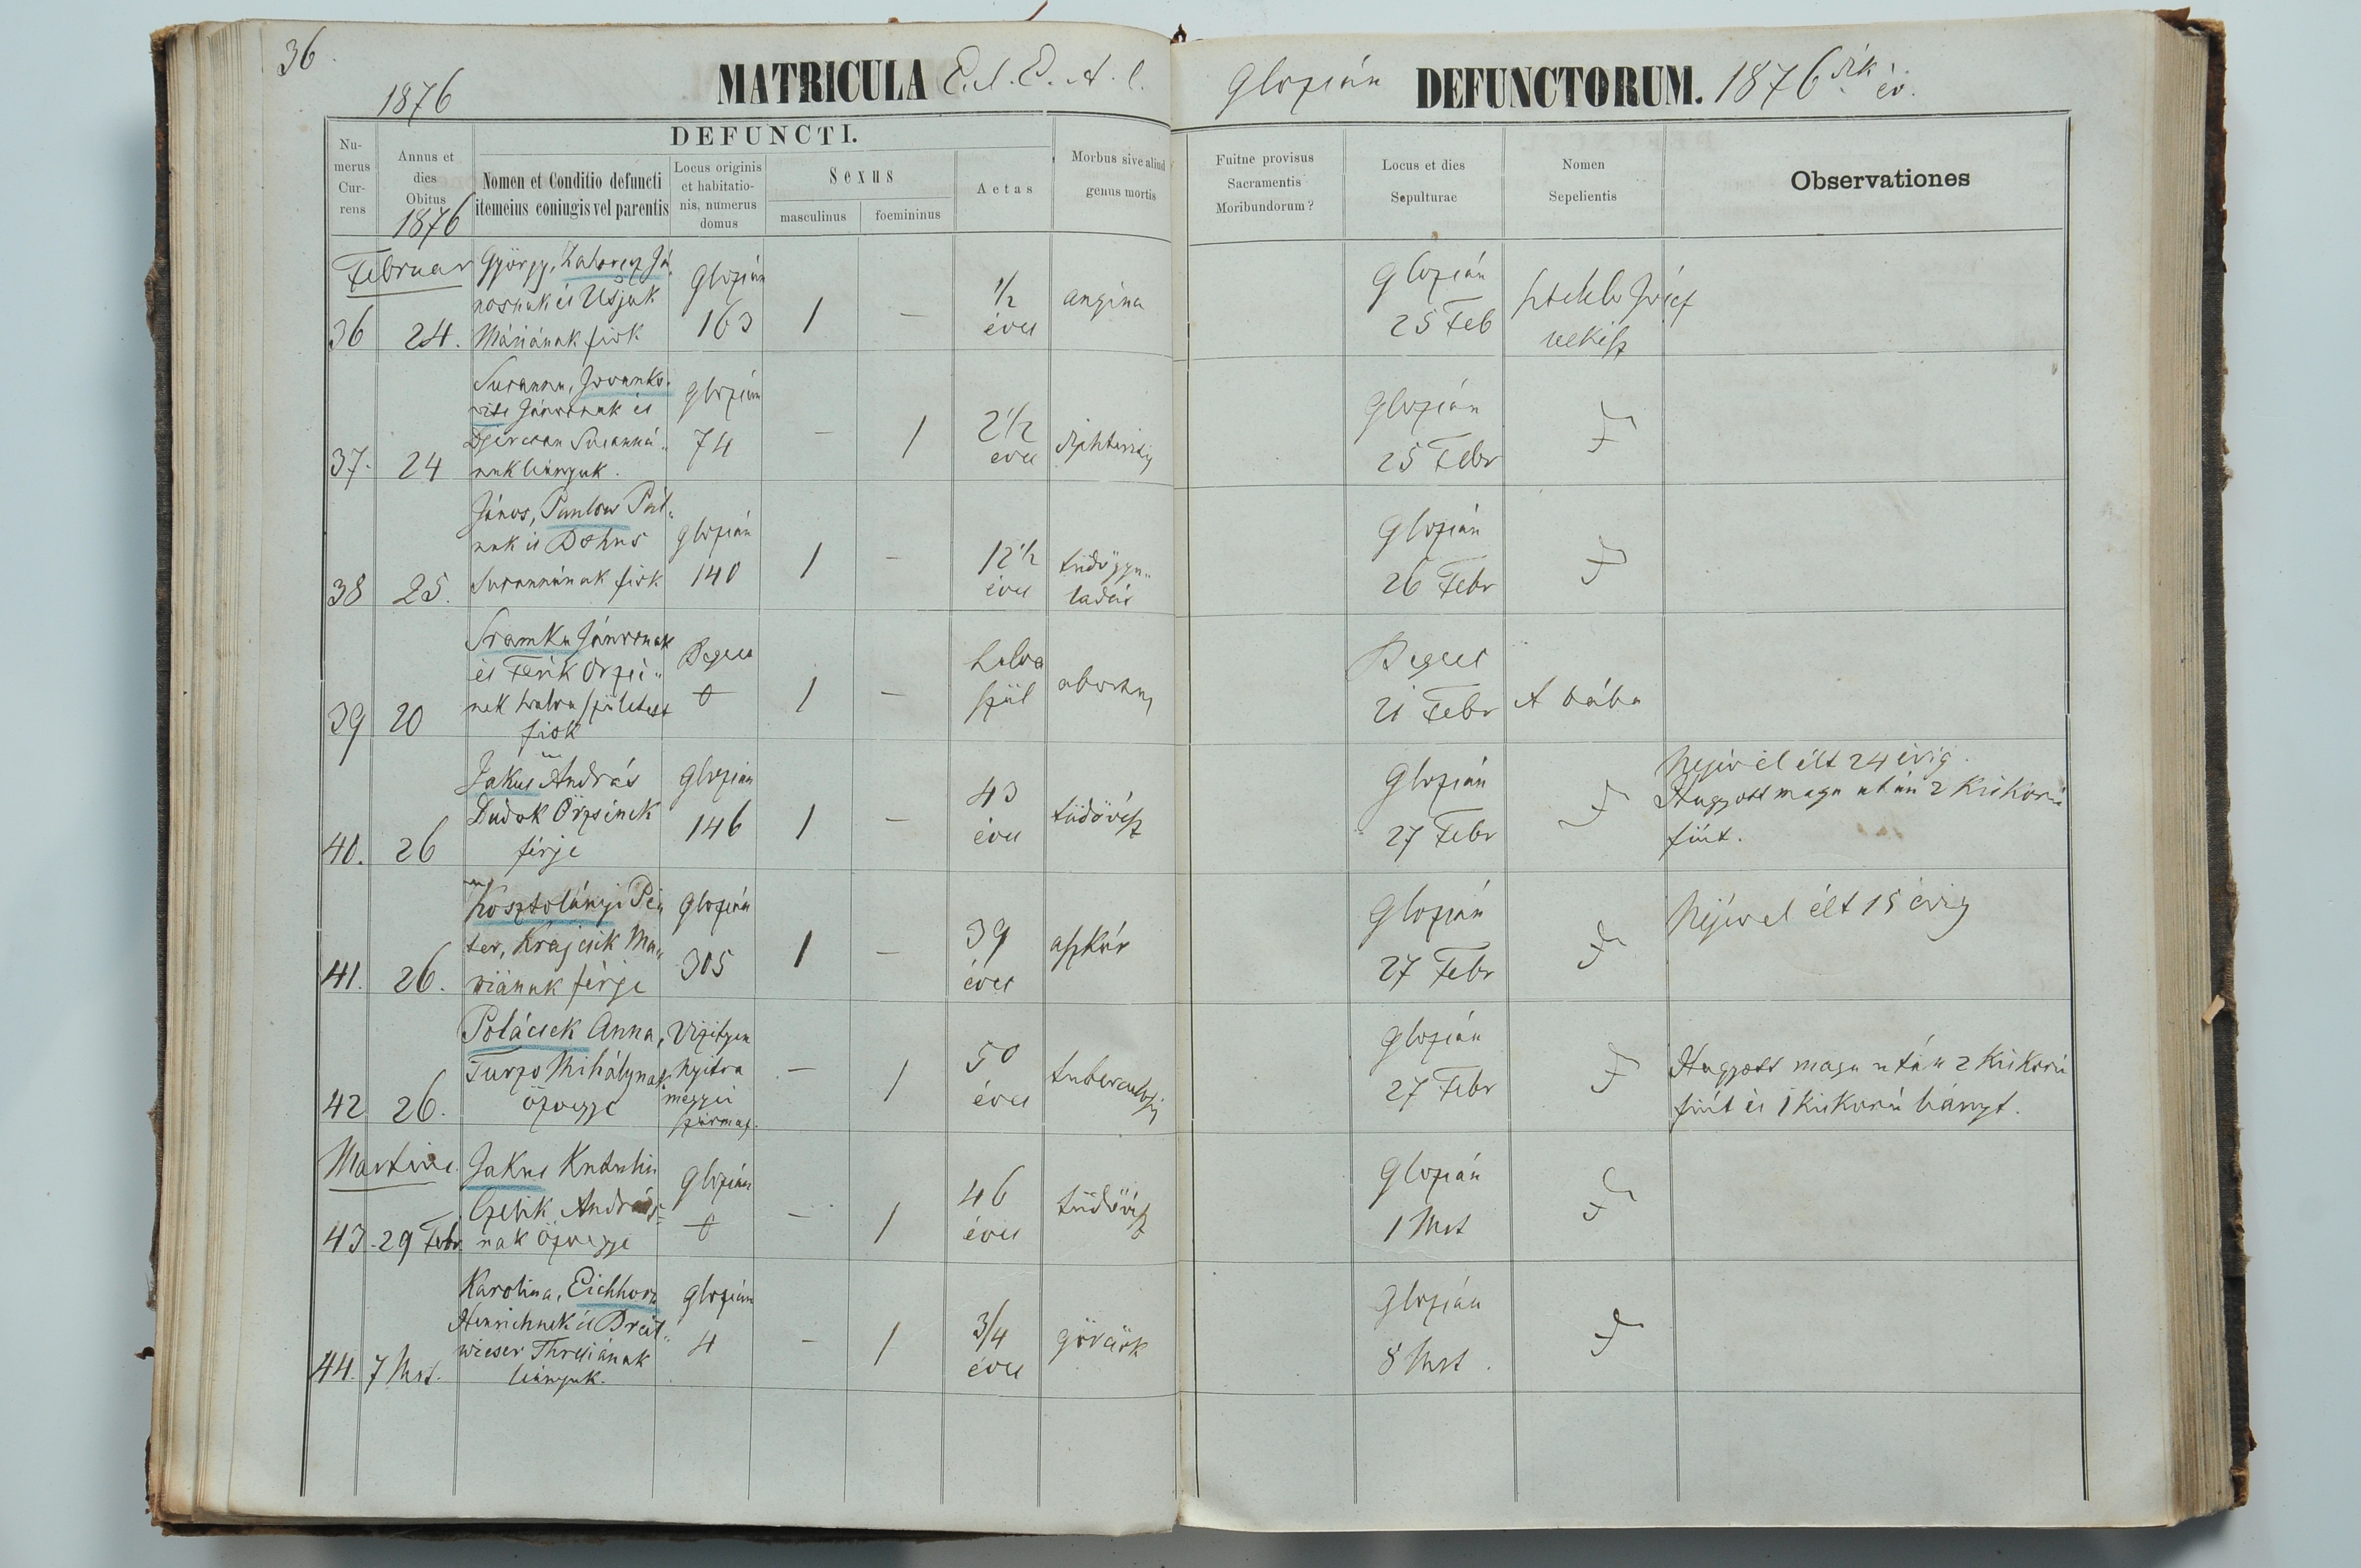 36.
1876
MATRICULA
Glozsán DEFUNCTORUM. 1876 ik év.
DEFUNCTI.
Numerus Currens
Annus et dies Obitus
1876
Nomen et Conditio defuncti itemeius coniugis vel parentis
Locus originis et habitationis, numerus domus
Sexus
masculinus
foemininus
Aetas
Morbus sive aliud genus mortis
Fuitne provisus Sacramentis Moribundorum?
Locus et dies Sepulturae
Nomen Sepelientis
Observationes
Februar
36 24. György, Zahorecz Já
nosnak és
Máriának fiok
Glozsán 163 1 – 1/2 éves angina
Glozsán 25 Feb József
37. 24 Susanna, Jovanko
vits Jánosnak és
Susanná
nak lányuk.
Glozsán 74 – 1 2 1/2 éves
Glozsán 25 Febr
38 25. János, Paulov Pál
nak és Bohus
Susannának fiok
Glozsán 140 1 – 12 1/2 éves tüdőgyu
ladás
Glozsán 26 Febr
39 20 Sramka Jánosnak
és Ferik Orzsé
nek halva született
fiok
0 1 – halva szül abortus
21 Febr A bába
40. 26 Jakus András
Dudok Örzsének
férje
Glozsán 146 1 – 43 éves tüdővész
Glozsán 27 Febr
Nejével élt 24 évig.
Hagyott maga után 2 kiskorú
fiút.
41. 26. Kosztolányi Pé
ter, Krajcsik Ma
riának férje
Glozsán 305 1 – 39 éves aszkór
Glozsán 27 Febr
Nejével élt 15 évig
42 26. Polácsek Anna,
Turzo Mihálynak
özvegye
Nyitra
megyei
származ.
– 1 50 éves tuberculosis
Glozsán 27 Febr
Hagyott maga után 2 kiskorú
fiút és 1 kiskorú lányt.
Martius.
43. 29 Febr Jakus Katalin
András
nak özvegye
Glozsán 0 – 1 46 éves tüdővész
Glozsán 1 Mrt
44. 7 Mrt. Karolina, Eichhorn
Henrichnek és Breit
wieser Thresiának
lányuk.
Glozsán 4 – 1 3/4 éves görcsök
Glozsán 8 Mrt.